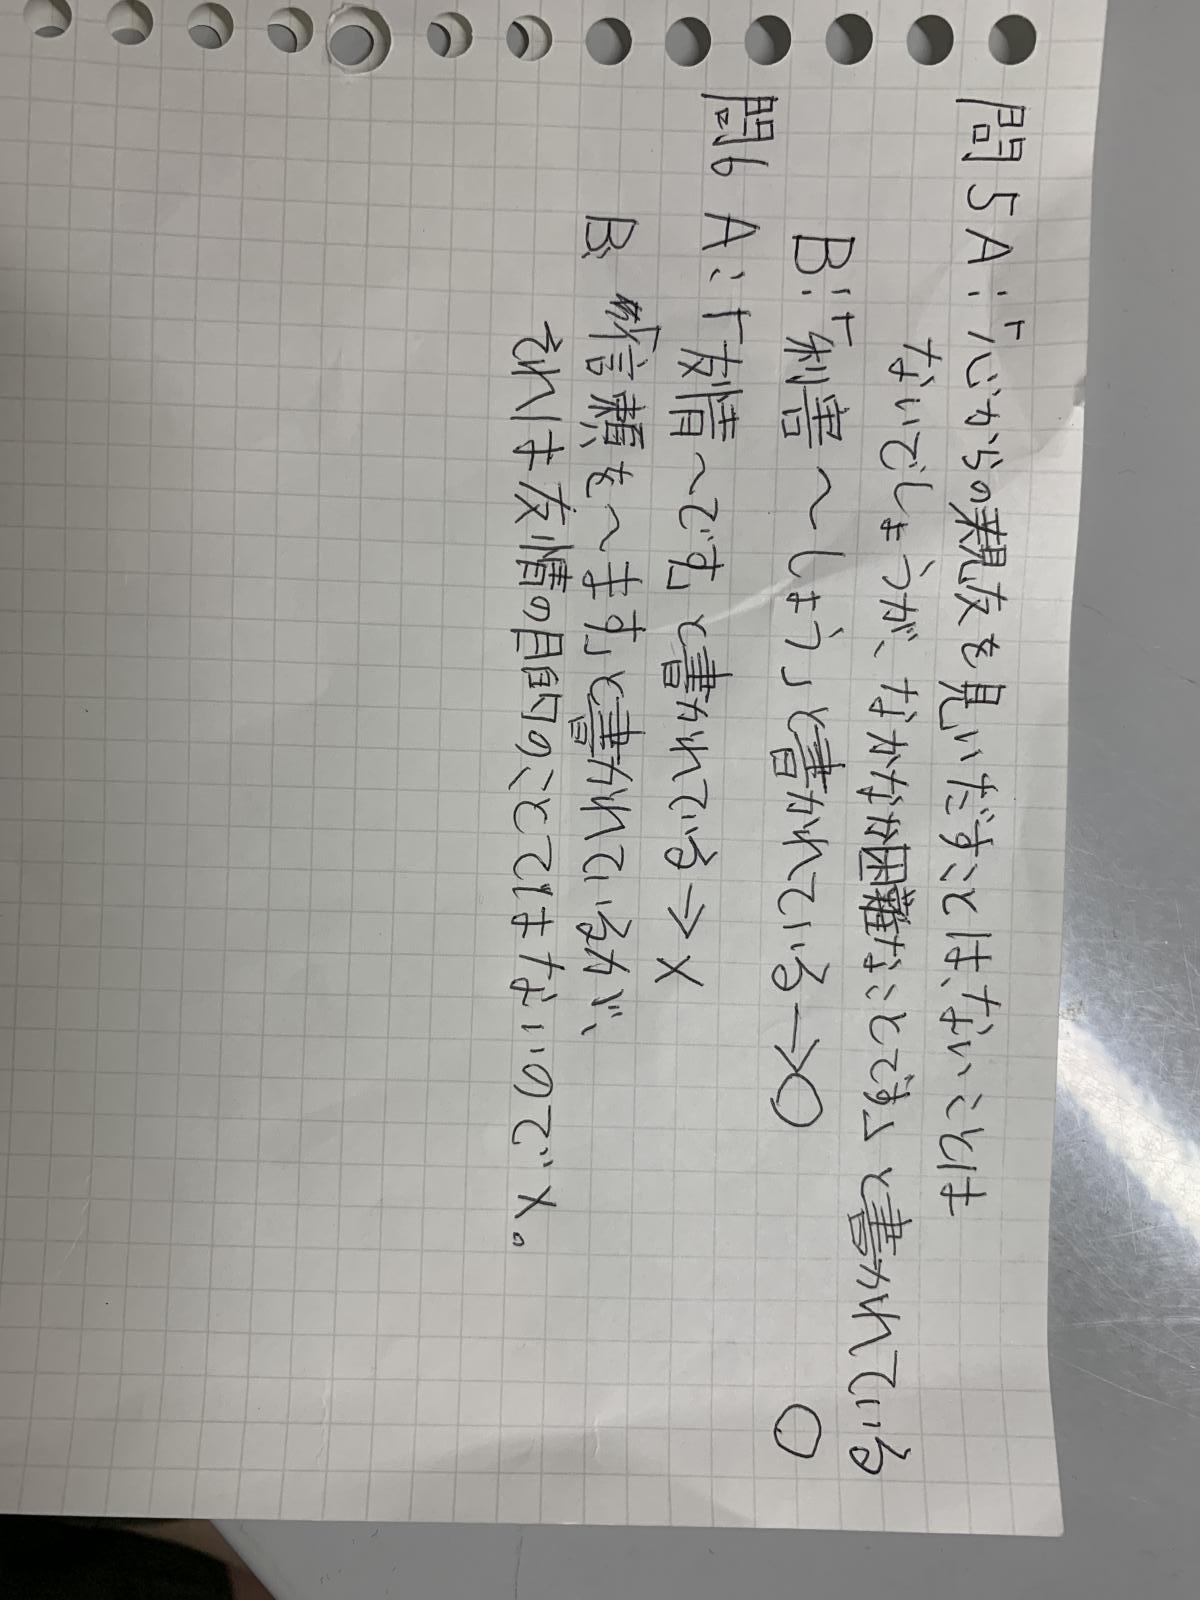 問5A:「心からの親友を見いだすことは、ないことも
ないでしょうが、なかなか困難なことです」と書かれている
○
B:「利害〜しょう」と書かれている→○
問6 A:「友情〜です」と書かれている→×
B: 信頼を〜ます」と書かれているが、
それは友情の目的のことではないので×。